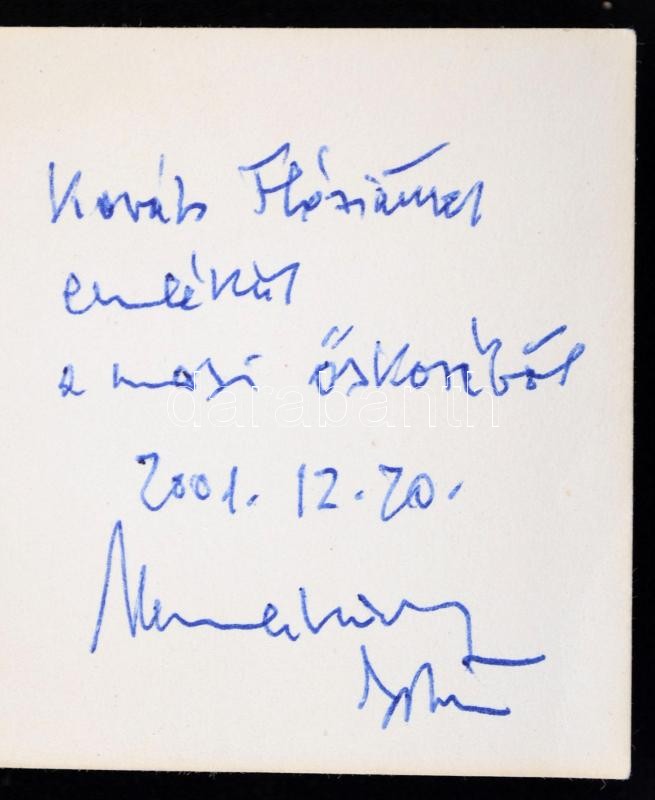 Kováts Flóriánnak
emlékül
a mozi őskorából
darabanth
2001. 12. 20.
Nemeskürty
István